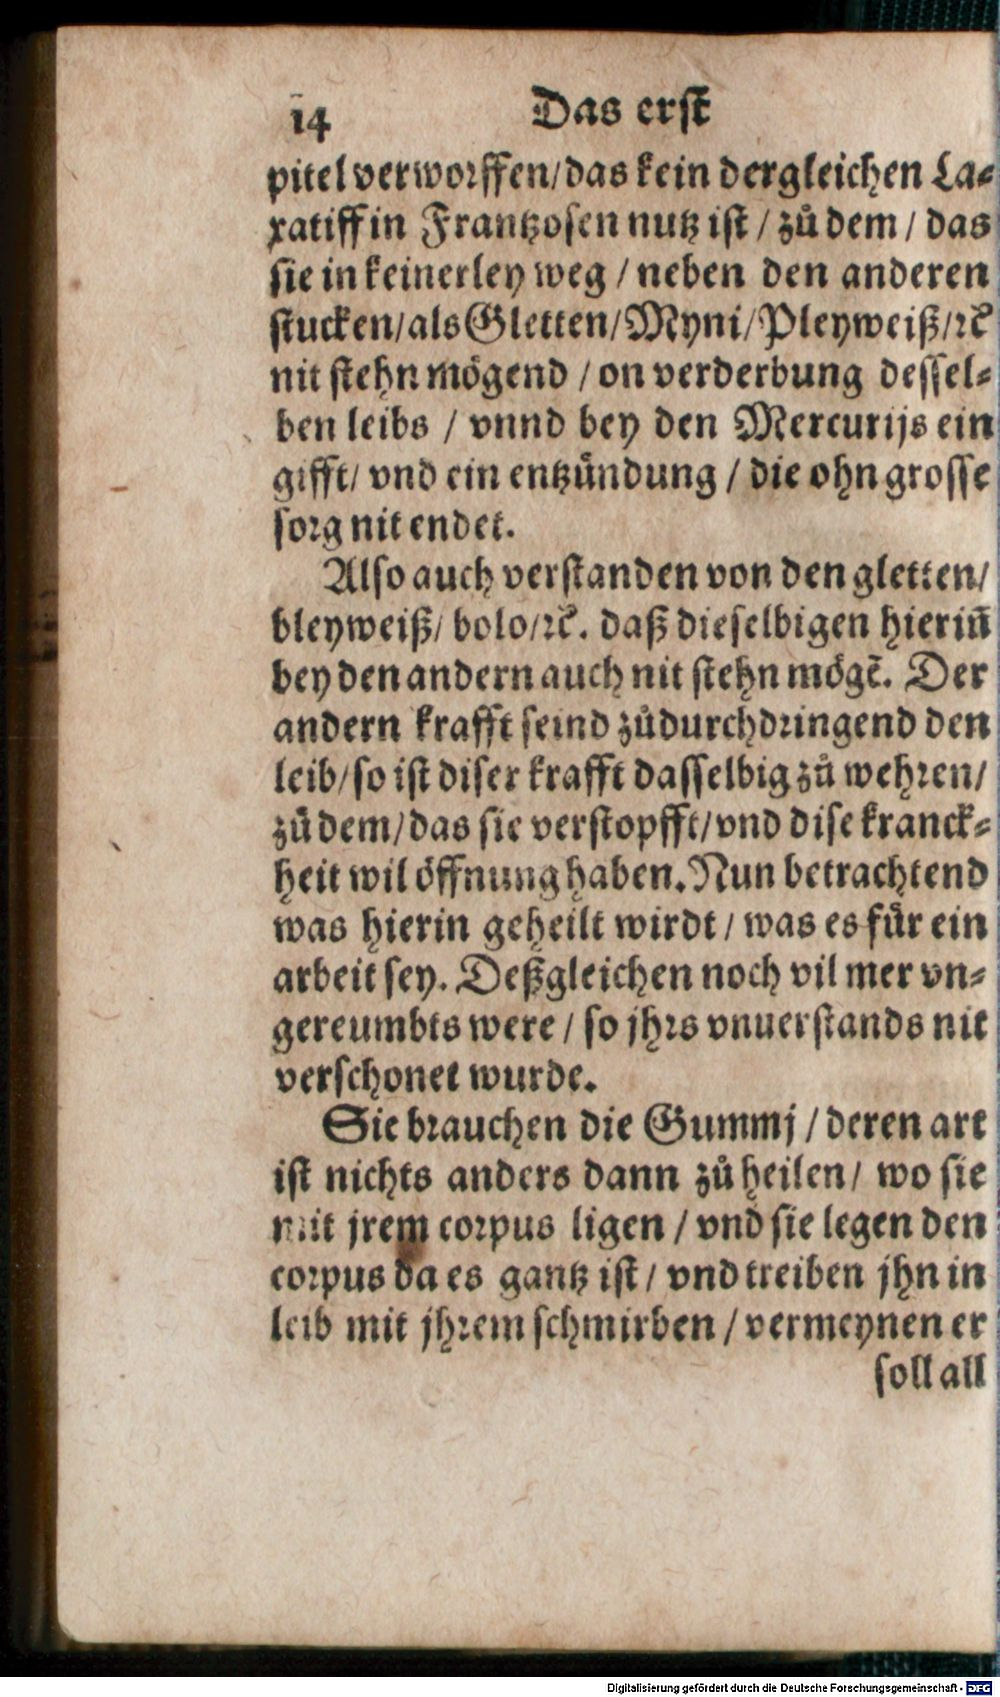 14 Das erst
pitel verworffen/das kein dergleichen La⸗
xatiff in Frantzosen nutz ist / zů dem / das
sie in keinerley weg / neben den anderen
stucken/als Gletten/Myni/Pleyweiß/ꝛc̄
nit stehn mögend / on verderbung dessel⸗
ben leibs / vnnd bey den Mercurijs ein
gifft/ vnd ein entzündung / die ohn grosse
sorg nit endet.
Also auch verstanden von den gletten/
bleyweiß/ bolo/ꝛc̄. daß dieselbigen hierin̄
bey den andern auch nit stehn mögē. Der
andern krafft seind zůdurchdringend den
leib/so ist diser krafft dasselbig zů wehren/
zů dem/das sie verstopfft/vnd dise kranck⸗
heit wil öffnung haben. Nun betrachtend
was hierin geheilt wirdt / was es für ein
arbeit sey. Deßgleichen noch vil mer vn⸗
gereumbts were / so jhrs vnuerstands nit
verschonet wurde.
Sie brauchen die Gummj / deren art
ist nichts anders dann zů heilen/ wo sie
mit jrem corpus ligen / vnd sie legen den
corpus da es gantz ist / vnd treiben jhn in
leib mit jhrem schmirben / vermeynen er
soll all
Digitalisierung gefördert durch die Deutsche Forschungsgemeinschaft - DFG